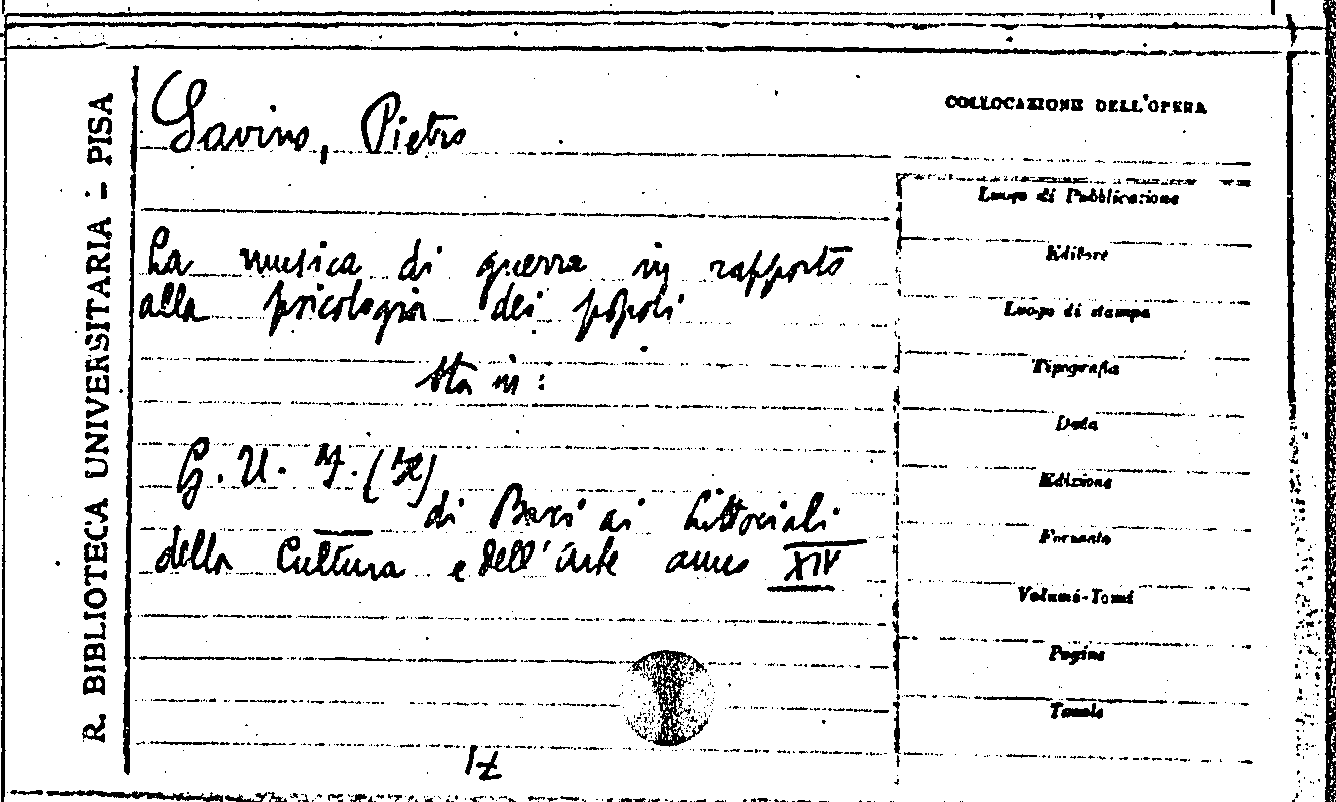 R. BIBLIOTECA UNIVERSITARIA - PISA
COLLOCAZIONE DELL'OPERA
Savino, Pietro
La musica di guerra in rapporto
alla psicologia dei popoli
Sta in:
G. U. F.
di Bari ai Littoriali
della Cultura e dell'Arte anno XIV
Luogo di Pubblicazione
Editore
Luogo di stampa
Tipografia
Data
Edizione
Formato
Volumi-Tomi
Pagine
Tavole